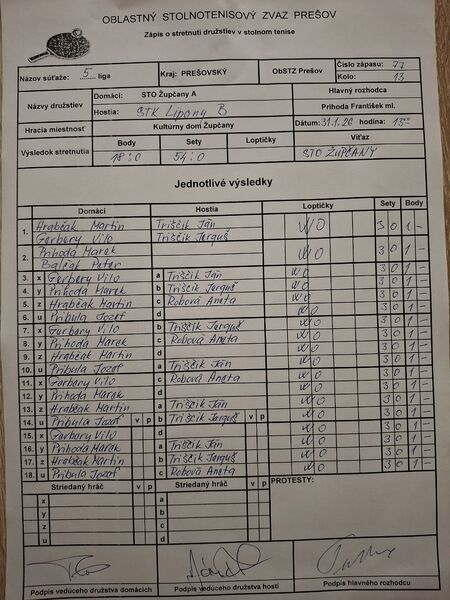 OBLASTNÝ STOLNOTENISOVÝ ZVAZ PREŠOV
Zápis o stretnutí družstiev v stolnom tenise
Názov súťaže: 5 liga Kraj: PREŠOVSKÝ ObSTZ Prešov Číslo zápasu: 77
Kolo: 13
Názvy družstiev Domáci: STO Župčany A Hlavný rozhodca
Hostia: STK Lipany B Príhoda František ml.
Hracia miestnosť Kultúrny dom Župčany Dátum: 31.1.26 hodina: 13:00
Výsledok stretnutia Body Sety Loptičky Víťaz
18:0 54:0 STO ŽUPČANY
Jednotlivé výsledky
Domáci Hostia Loptičky Sety Body
1. Hrabčák Martin Triščík Ján WO 3 0 1 -
Gerbery Vilo Triščík Jerguš
2. Príhoda Marek WO 3 0 1 -
Baláčik Peter
3. x Gerbery Vilo a Triščík Ján WO 3 0 1 -
4. y Príhoda Marek b Triščík Jerguš WO 3 0 1 -
5. z Hrabčák Martin c Robová Aneta WO 3 0 1 -
6. u Pribula Jozef d WO 3 0 1 -
7. x Gerbery Vilo b Triščík Jerguš WO 3 0 1 -
8. y Príhoda Marek c Robová Aneta WO 3 0 1 -
9. z Hrabčák Martin d WO 3 0 1 -
10. u Pribula Jozef a Triščík Ján WO 3 0 1 -
11. x Gerbery Vilo c Robová Aneta WO 3 0 1 -
12. y Príhoda Marek d WO 3 0 1 -
13. z Hrabčák Martin a Triščík Ján WO 3 0 1 -
14. u Pribula Jozef v p b Triščík Jerguš v p WO 3 0 1 -
15. x Gerbery Vilo d WO 3 0 1 -
16. y Príhoda Marek a Triščík Ján WO 3 0 1 -
17. z Hrabčák Martin b Triščík Jerguš WO 3 0 1 -
18. u Pribula Jozef c Robová Aneta WO 3 0 1 -
Striedaný hráč v p Striedaný hráč v p PROTESTY:
x a
y b
z c
u d
Podpis vedúceho družstva domácich Podpis vedúceho družstva hostí Podpis hlavného rozhodcu